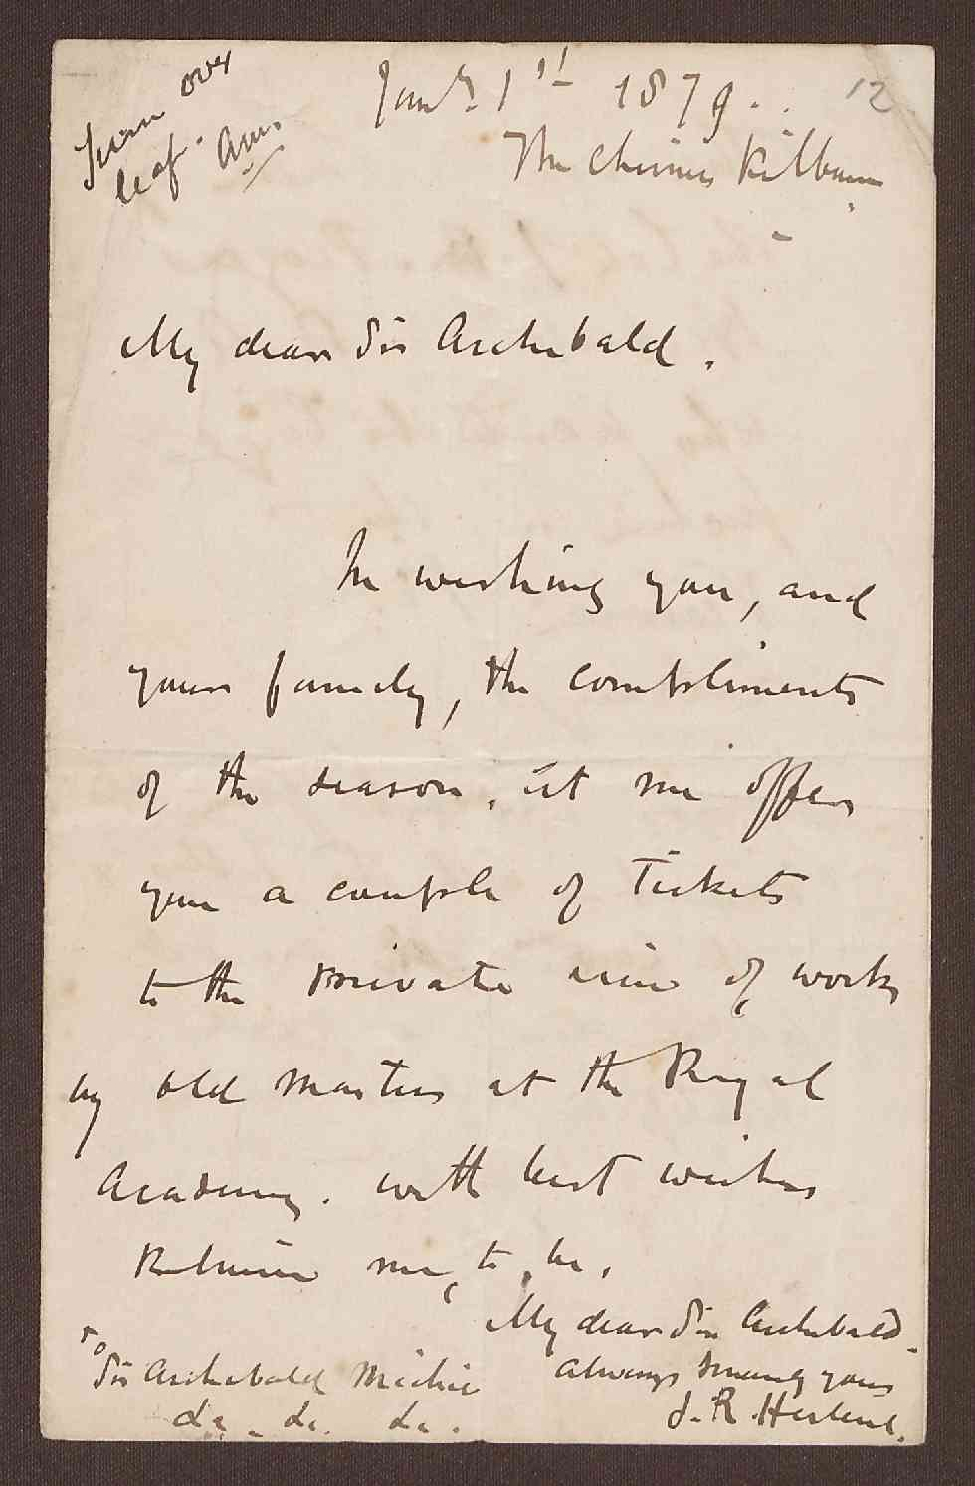 Turn over
leaf.
Jany. 1st 1879..
12
The Chimes Kilburn
My dear Sir Archibald.
In wishing you, and
your family, the compliments
of the season, let me offer
you a couple of Tickets
to the private view of works
by old Masters at the Royal
Academy. with best wishes
Believe me, to, be,
My dear Sir Archibald.
always sincerely yours
J. R. Herbert.
To
Sir Archibald Michie
&c. &c. &c.